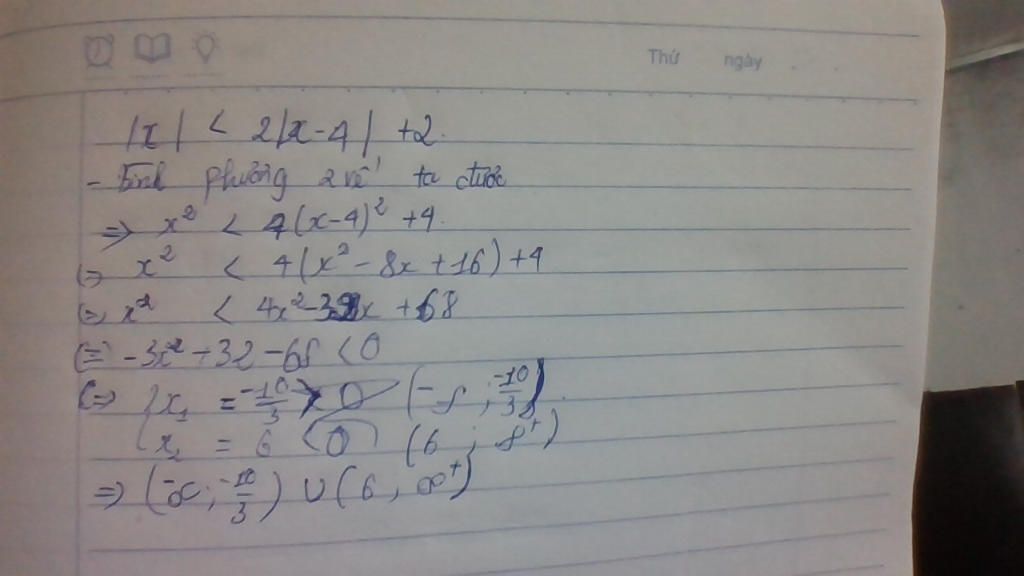 Thứ ngày
|x| < 2|x-4| +2.
- Bình phương 2 vế ta được
=> x² < 4(x-4)² +4.
(=) x² < 4(x² - 8x + 16) + 4
(=) x² < 4x² - 32x + 68
(=) -3x² + 32 - 68 < 0
(=) { x₁ = -10/3 > 0 (-∞ ; -10/3)
x₂ = 6 < 0 (6 ; ∞⁺)
=> (-∞ ; -10/3) ∪ (6 , ∞⁺)